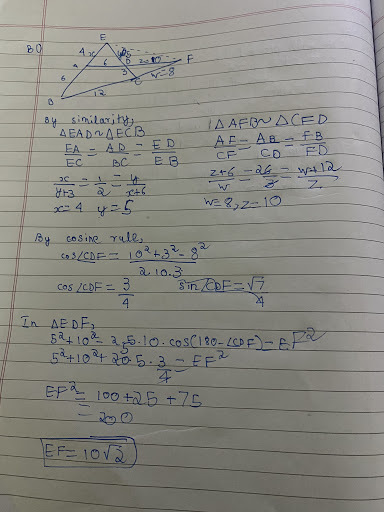 80
E
4 x y 5
A 6 D z=10 F
6 3 C w=8
B 12
By similarity,
△EAD~△ECB
EA/EC = AD/BC = ED/EB
x/y+3 = 1/2 = y/x+6
x=4 y=5
△AFB~△CFD
AF/CF = AB/CD = FB/FD
z+6/w = 26/3 = w+12/z
w=8, z=10
By cosine rule,
cos∠CDF = 10²+3²-8²/2.10.3
cos∠CDF = 3/4 sin∠CDF = √7/4
In △EDF,
5²+10²-2.5.10.cos(180-∠CDF) = EF²
5²+10²+20.5.3/4 = EF²
EF² = 100+25+75
= 200
EF = 10√2